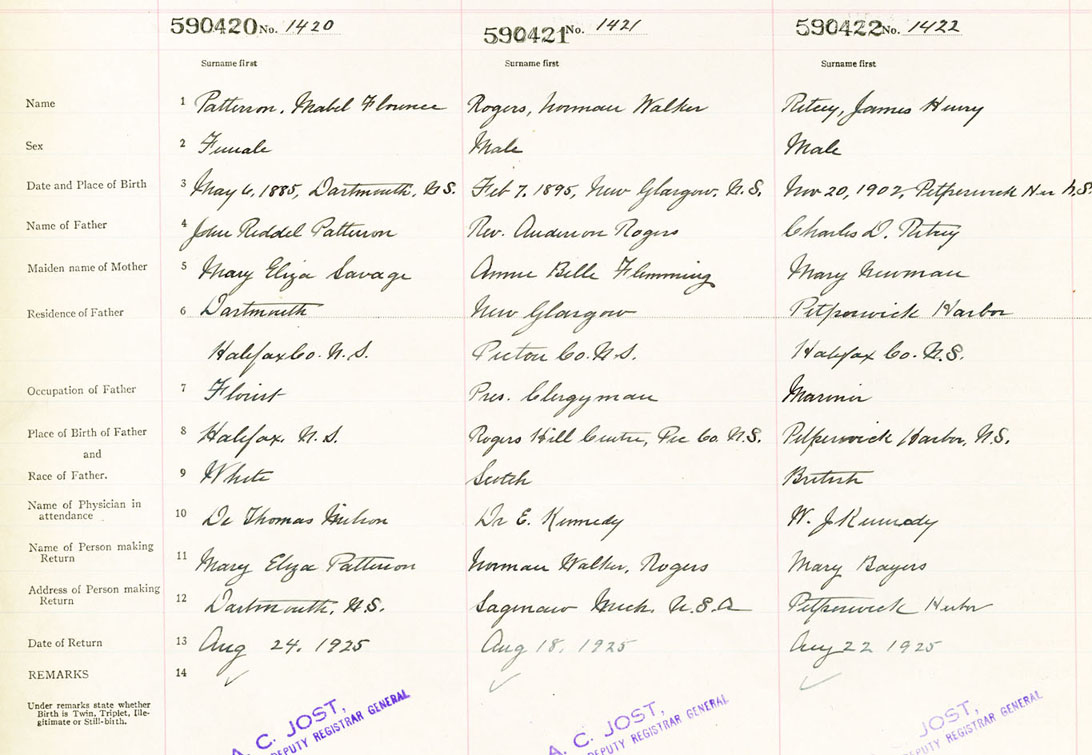 590420 No. 1420 590421 No. 1421 590422 No. 1422
Surname first Surname first Surname first
Name 1 Patterson, Mabel Florence Rogers, Norman Walker Ritcey, James Henry
Sex 2 Female Male Male
Date and Place of Birth 3 May 6, 1885, Dartmouth, N.S. Feb 7, 1895, New Glasgow, N.S. Nov 20, 1902, Petpeswick Hbr N.S.
Name of Father 4 John Riddel Patterson Rev. Anderson Rogers Charles D. Ritcey
Maiden name of Mother 5 Mary Eliza Savage Annie Belle Flemming Mary Newman
Residence of Father 6 Dartmouth New Glasgow Petpeswick Harbor
Halifax Co. N.S. Pictou Co. N.S. Halifax Co. N.S.
Occupation of Father 7 Florist Pres. Clergyman Mariner
Place of Birth of Father 8 Halifax, N.S. Rogers Hill Centre, Pic Co. N.S. Petpeswick Harbor, N.S.
and
Race of Father. 9 White Scotch British
Name of Physician in
attendance 10 Dr Thomas Dr E. Kennedy W. J Kennedy
Name of Person making
Return 11 Mary Eliza Patterson Norman Walker, Rogers Mary Bayers
Address of Person making
Return 12 Dartmouth, N.S. Sagenaw Mich. U.S.A Petpeswick Harbor
Date of Return 13 Aug 24, 1925 Aug 18, 1925 Aug 22 1925
REMARKS 14
Under remarks state whether
Birth is Twin, Triplet, Ille-
gitimate or Still-birth.
A. C. JOST, A. C. JOST, JOST,
DEPUTY REGISTRAR GENERAL DEPUTY REGISTRAR GENERAL DEPUTY REGISTRAR GENERAL